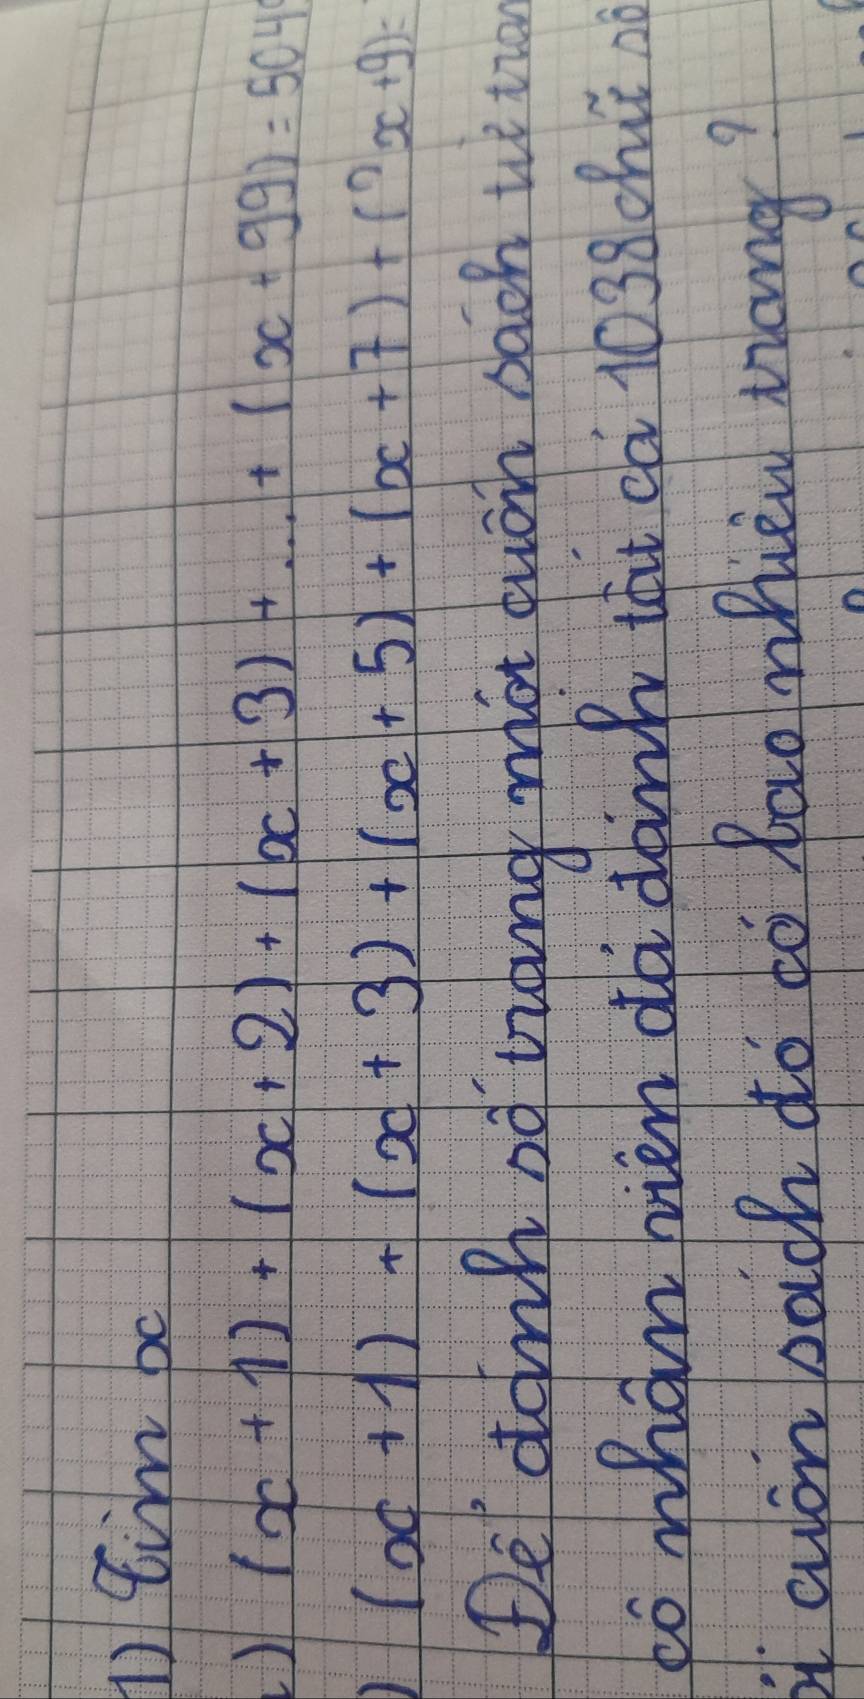 1) Tìm x
) (x + 1) + (x + 2) + (x + 3) + ... + (x + 99) = 504
) (x + 1) + (x + 3) + (x + 5) + (x + 7) + ( x + 9) =
Để đánh số trang một cuốn sách từ tran
cô nhân viên đã đánh tất cả 1038 chữ số
cuốn sách đó có bao nhiêu trang ?